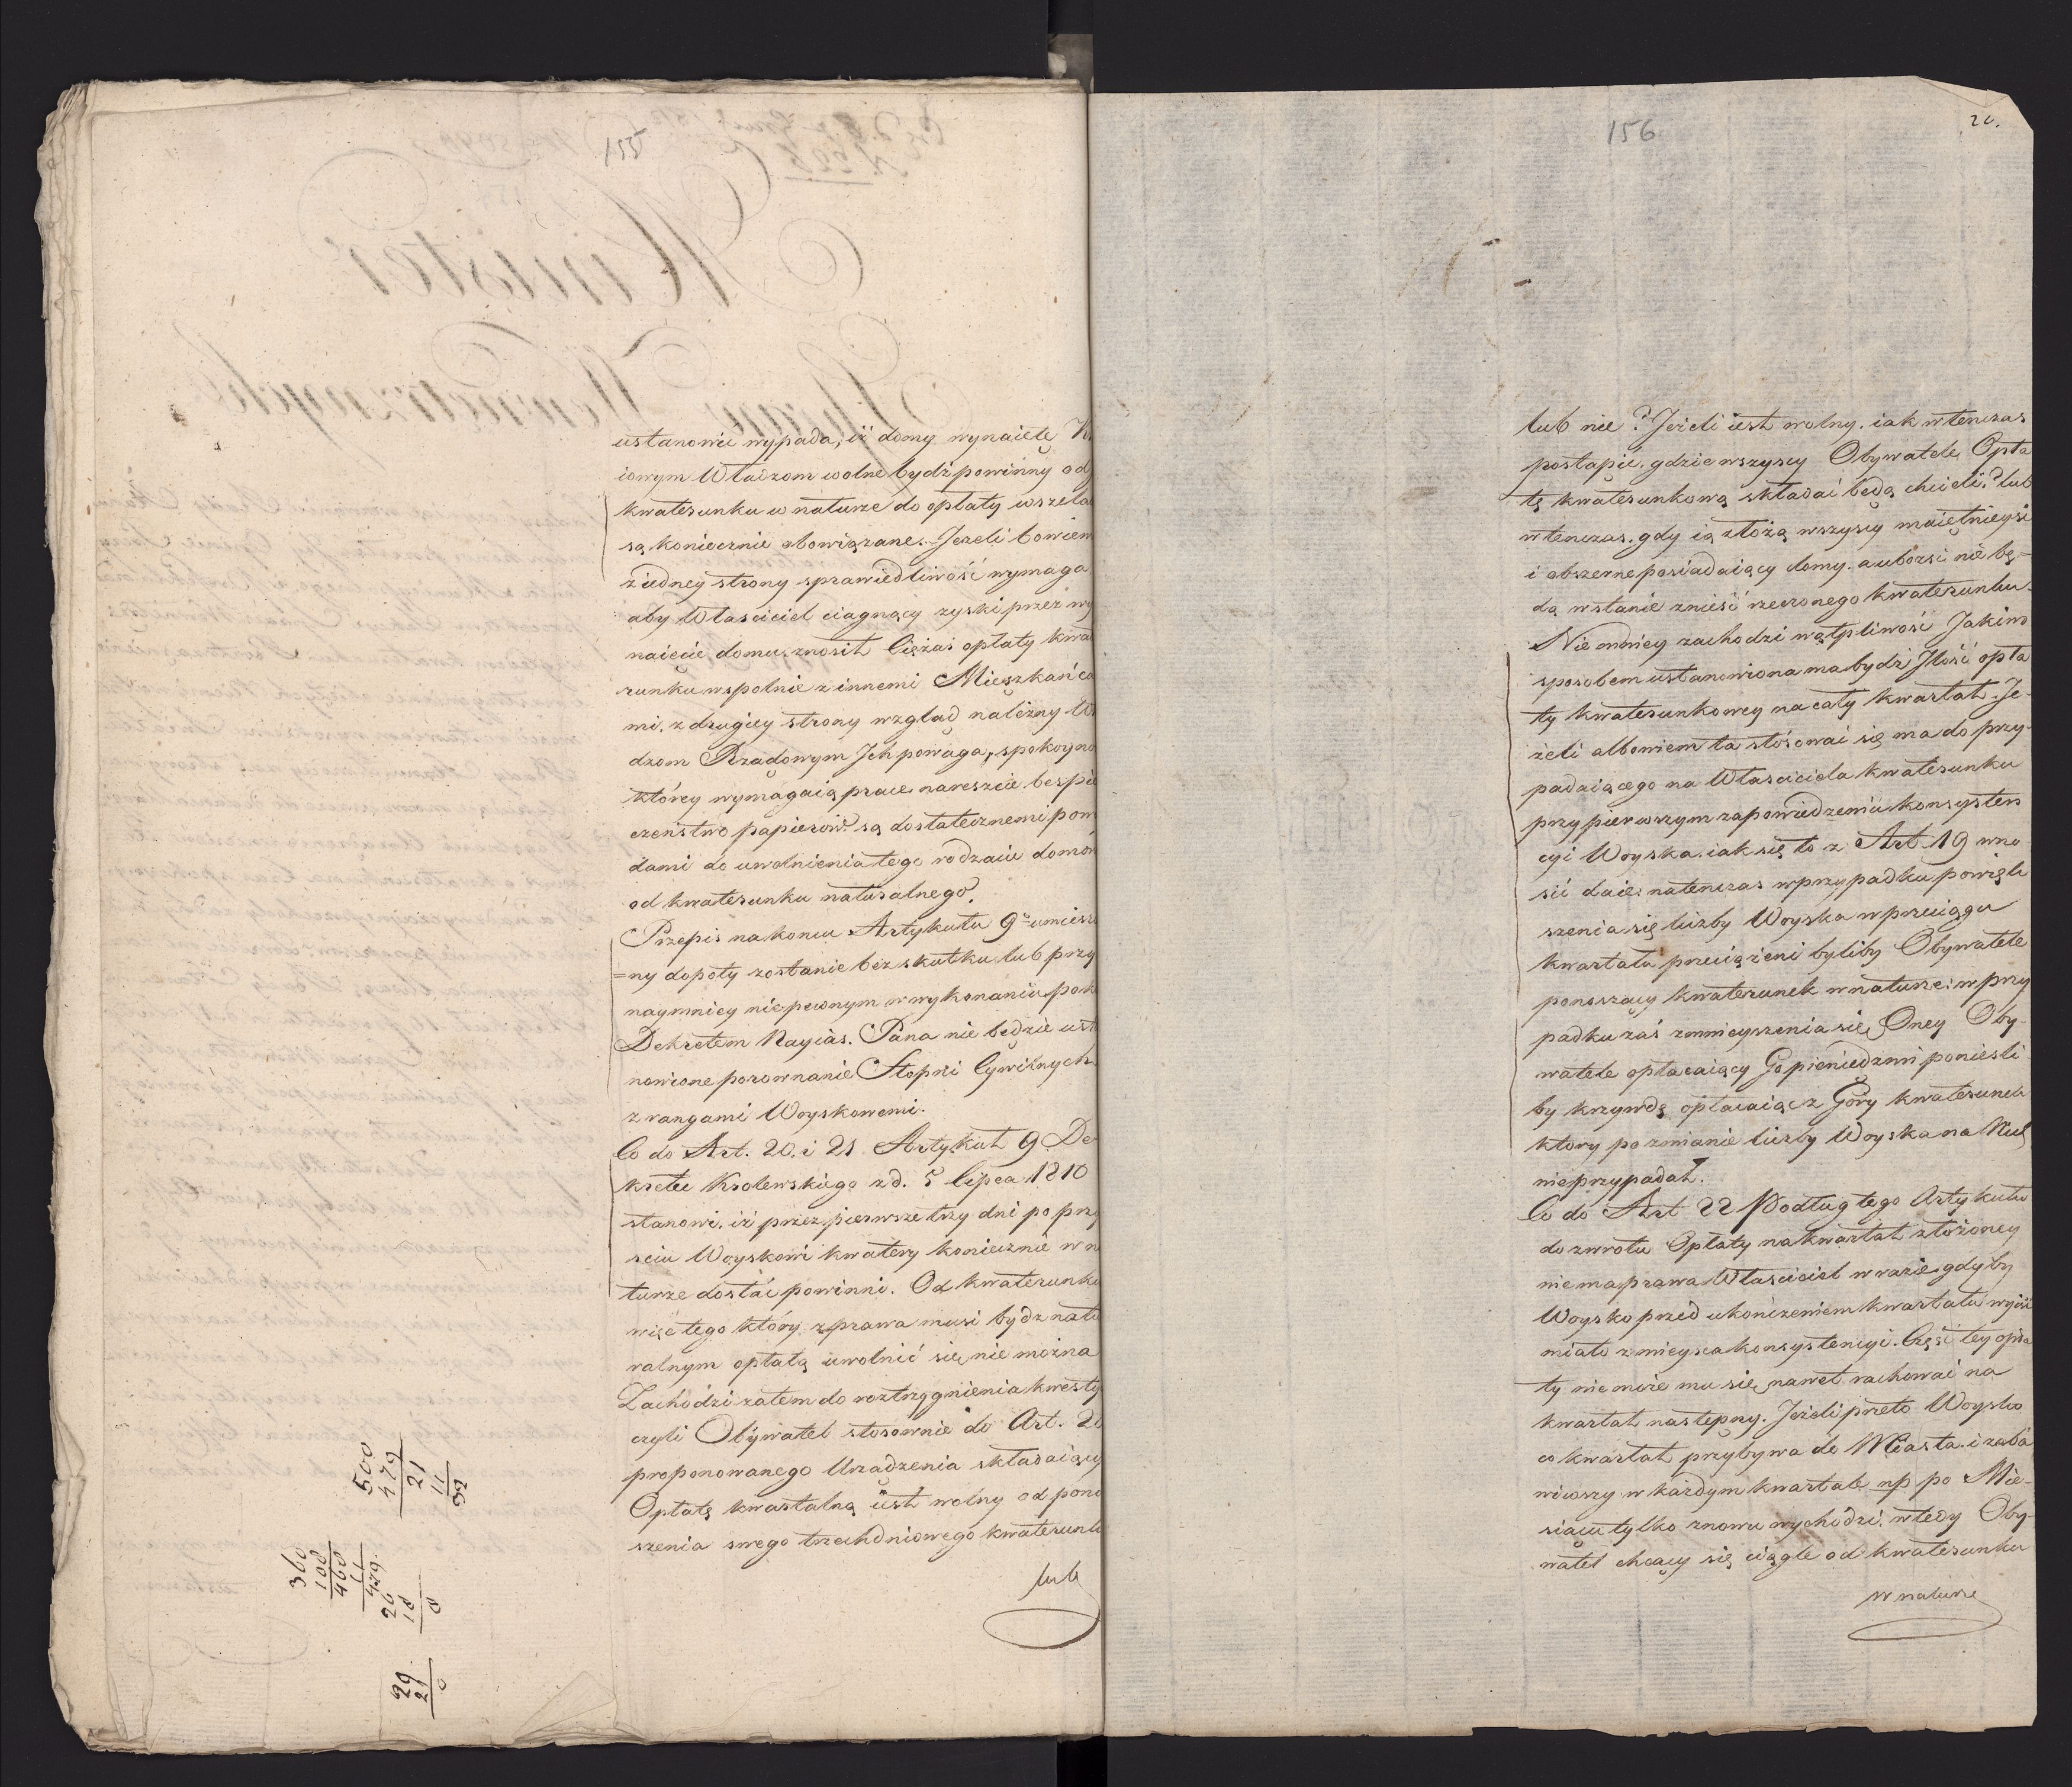 155
ustanowić wypada, iż domy wynaięte
iowym Władzom wolne bydź powinny od
kwaterunku w naturze do opłaty wszela
są koniecznie obowiązane. Jeżeli bowiem
z iedney strony sprawiedliwość wymaga
aby Własciciel ciągnący zyski przez wy
naięcie domu, znosił Ciężar opłaty kwa
runku wspolnie z innemi Mieszkańca
mi, z drugiey strony wzgląd należny Wł
dzom Rządowym Ich powaga, spokoyno
którey wymagaią prace nareszcie bespie
czeństwo papierów są dostatecznemi pow
dami do uwolnienia tego rodzaiu domów
od kwaterunku naturalnego.
Przepis na koncu Artykułu 9º umiesz
=ny dopoty zostanie bez skutku lub przy
naymniey niepewnym w wykonaniu, pok
Dekretem Nayias. Pana nie będzie ust
nowione porownanie Stopni Cywilnych
z rangami Woyskowemi.
Co do Art. 20. i 21 Artykuł 9 De-
kretu Krolewskiego z d. 5 Lipca 1810
stanowi, iż przez pierwsze trzy dni po przy
sciu Woyskowi kwatery koniecznie w na
turze dostać powinni. Od kwaterunku
więc tego który z prawa musi bydz natu
ralnym opłatą uwolnić się nie można
Zachodzi zatem do roztrzygnienia kwesty
czyli Obywatel stosownie do Art. 20
proponowanego Urządzenia składaiący
Opłatę kwartalną iest wolny od pono
szenia swego trzechdniowego kwaterunk
lub
500
479
21
11
32
360
100
460
11
479.
26
18
8
29
21
156
20.
lub nie? Jeżeli iest wolny. iak wtenczas
postąpić, gdzie wszyscy Obywatele Opła
tę kwaterunkową składać będą chcieli? lub
wtenczas. gdy ią złożą wszyscy maiętnieysi
i obszerne posiadaiący domy. a ubożsi nie bę-
dą w stanie znieść rzeczonego kwaterunku.
Nie mniey zachodzi wątpliwość Jakim
sposobem ustanowiona ma bydź Ilość opła
ty kwaterunkowey na cały kwartał. Je-
żeli albowiem ta stósować się ma do przy-
padaiącego na Własciciela kwaterunku
przy pierwszym zapowiedzeniu konsysten
cyi Woyska, iak się to z Art. 19 wno
sić daie; natenczas w przypadku powięk
szenia się liczby Woyska w przeciągu
kwartału przeciążeni byliby Obywatele
ponoszący kwaterunek w naturze; w przy
padku zaś zmnieyszenia się Oney Oby-
watele opłacaiący Go pieniędzmi ponieśli
by krzywdę opłacaiąc z Góry kwaterunek
ktory po zmianie liczby Woyska na Nich
nie przypadał.
Co do Art 22 Podług tego Artykułu
do zwrotu Opłaty na kwartał złożoney
nie ma prawa Własciciel w razie gdyby
Woysko przed ukończeniem kwartału wyiść
miało z mieysca konsystencyi. Część tey opła
ty nie może mu się nawet rachować na
kwartał następny. Jeżeli przeto Woysko
co kwartał przybywa do Miasta i zaba
wiwszy w każdym kwartale np po Mie-
siącu tylko znowu wychodzi, wtedy Oby-
watel chcący się ciągle od kwaterunku
w naturze